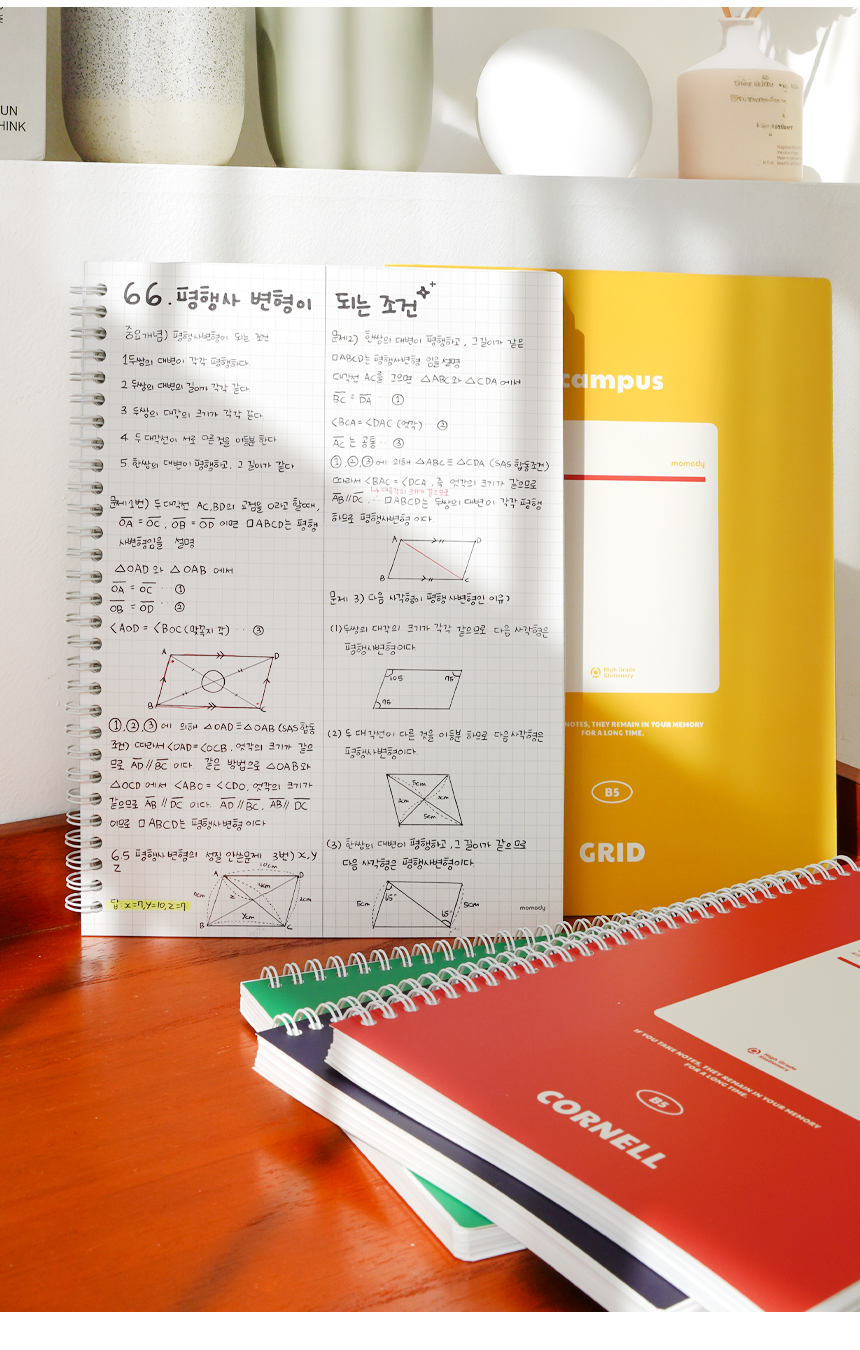 UN
HINK
66. 평행사 변형이 되는 조건
중요개념) 평행사변형이 되는 조건
1 두쌍의 대변이 각각 평행하다
2 두쌍의 대변의 길이가 각각 같다
3 두쌍의 대각의 크기가 각각 같다
4. 두 대각선이 서로 다른것을 이등분 한다
5. 한쌍의 대변이 평행하고, 그 길이가 같다
문제 1번) 두 대각선 AC, BD의 교점을 O라고 할때,
OA = OC, OB = OD 이면 □ABCD는 평행
사변형임을 설명
△OAD 와 △OAB 에서
OA = OC ··· ①
OB = OD ··· ②
<AOD = <BOC (맞꼭지 각) ··· ③
A
D
B
C
①,②,③ 에 의해 △OAD ≡ △OAB (SAS 합동
조건) 따라서 <OAD = <OCB, 엇각의 크기가 같으
므로 AD // BC 이다. 같은 방법으로 △OAB와
△OCD 에서 <ABO = <CDO, 엇각의 크기가
같으므로 AB // DC 이다. AD // BC, AB // DC
이므로 □ABCD는 평행사변형 이다
6.5 평행사변형의 성질 안쓴문제 3번) x, y
z
답: x=7, y=10, z=7
A
D
B
C
ycm
문제2) 한쌍의 대변이 평행하고, 그 길이가 같은
□ABCD는 평행사변형 임을 설명
대각선 AC를 그으면 △ABC 와 △CDA 에서
BC = DA ··· ①
<BCA = <DAC (엇각) ··· ②
AC 는 공통 ··· ③
①,②,③ 에 의해 △ABC ≡ △CDA (SAS 합동조건)
따라서 <BAC = <DCA, 즉 엇각의 크기가 같으므로
AB // DC, ··· □ABCD는 두쌍의 대변이 각각 평행
하므로 평행사변형 이다
A
D
B
C
문제 3) 다음 사각형이 평행사변형인 이유?
(1) 두쌍의 대각의 크기가 각각 같으므로 다음 사각형은
평행사변형이다
105
75°
75
(2) 두 대각선이 다른 것을 이등분 하므로 다음사각형은
평행사변형이다.
5cm
5cm
(3) 한쌍의 대변이 평행하고, 그 길이가 같으므로
다음 사각형은 평행사변형이다
5cm
65°
65°
5cm
momody
campus
momody
High Grade
Stationery
NOTES, THEY REMAIN IN YOUR MEMORY
FOR A LONG TIME.
B5
GRID
High Grade
Stationery
IF YOU TAKE NOTES, THEY REMAIN IN YOUR MEMORY
FOR A LONG TIME.
B5
CORNELL